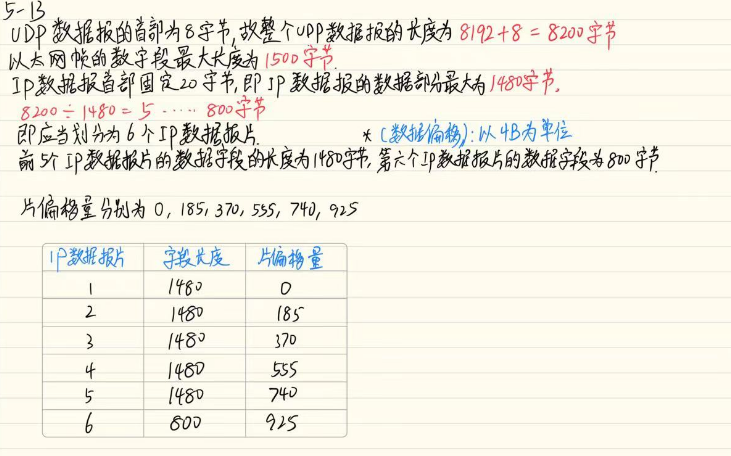 5-13
UDP数据报的首部为8字节,故整个UPP数据报的长度为 8192+8 = 8200字节
以太网帧的数字段最大长度为1500字节.
IP数据报首部固定20字节,即IP数据报的数据部分最大为1480字节.
8200÷1480 = 5 ····· 800字节
即应当划分为6个IP数据报片. * (数据偏移):以4B为单位
前5个IP数据报片的数据字段的长度为1480字节,第六个IP数据报片的数据字段为800字节.
片偏移量分别为 0, 185, 370, 555, 740, 925
IP数据报片 字段长度 片偏移量
1 1480 0
2 1480 185
3 1480 370
4 1480 555
5 1480 740
6 800 925